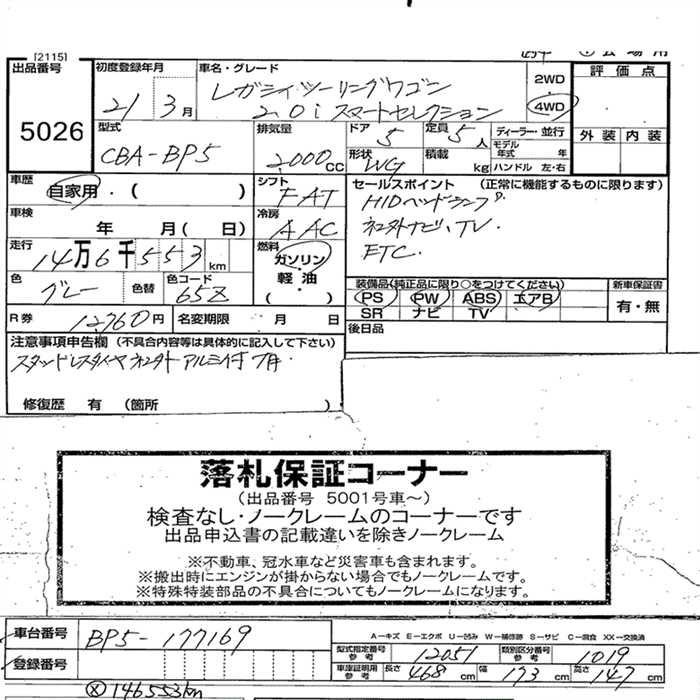 [2115]
出品番号
5026
初度登録年月
21年3月
車名・グレード
レガシィツーリングワゴン
2.0i スマートセレクション
2WD
4WD
評価点
外装 内装
型式
CBA-BP5
排気量
2000CC
ドア
5
定員
5人
形状
WG
積載
kg
ディーラー・並行
モデル年式 年
ハンドル 左・右
車歴
自家用・( )
シフト
FAT
セールスポイント (正常に機能するものに限ります)
HIDヘッドランプ
ネエ外ナビ、TV.
ETC.
車検
年 月( 日)
冷房
AAC
走行
14万6千553km
燃料
ガソリン・軽油
( )
色
グレー
色替
色コード
65Z
装備品(純正品に限り○をつけてください)
PS PW ABS エアB
SR ナビ TV
新車保証書
有・無
R券
12760円
名変期限 月 日
後日品
注意事項申告欄 (不具合内容等は具体的に記入して下さい)
スタッドレスタイヤ
アルミ付
修復歴 有 (箇所 )
落札保証コーナー
(出品番号 5001号車〜)
検査なし・ノークレームのコーナーです
出品申込書の記載違いを除きノークレーム
※不動車、冠水車など災害車も含まれます。
※搬出時にエンジンが掛からない場合でもノークレームです。
※特殊特装部品の不具合についてもノークレームになります。
車台番号
BP5-177169
A-キズ E-エクボ U-凹み W-補修跡 S-サビ C-腐食 XX-交換済
型式指定番号 参考
12051
類別区分番号 参考
1019
登録番号
車庫証明用 参考
長さ 468cm 幅 173cm 高さ 147cm
Ⓧ146553km